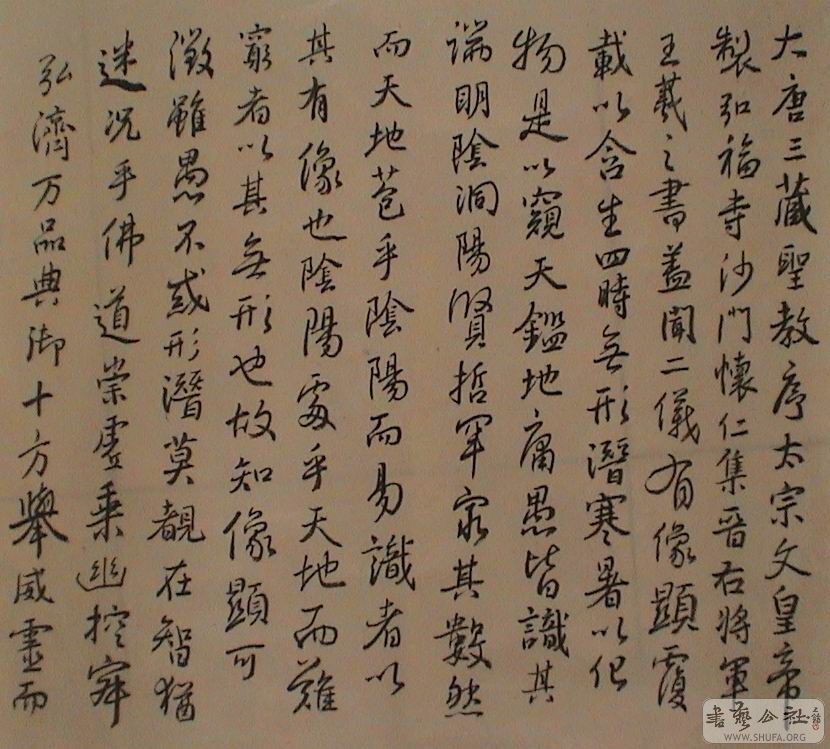 大唐三藏聖教序太宗文皇帝
製弘福寺沙門懷仁集晉右將軍
王羲之書蓋聞二儀有像顯覆
載以含生四時無形潛寒暑以化
物是以窺天鑑地庸愚皆識其
端明陰洞陽賢哲罕窮其數然
而天地苞乎陰陽而易識者以
其有像也陰陽處乎天地而難
窮者以其無形也故知像顯可
徵雖愚不惑形潛莫覩在智猶
迷況乎佛道崇虛乘幽控寂
弘濟万品典御十方舉威靈而
書藝公社
WWW.SHUFA.ORG